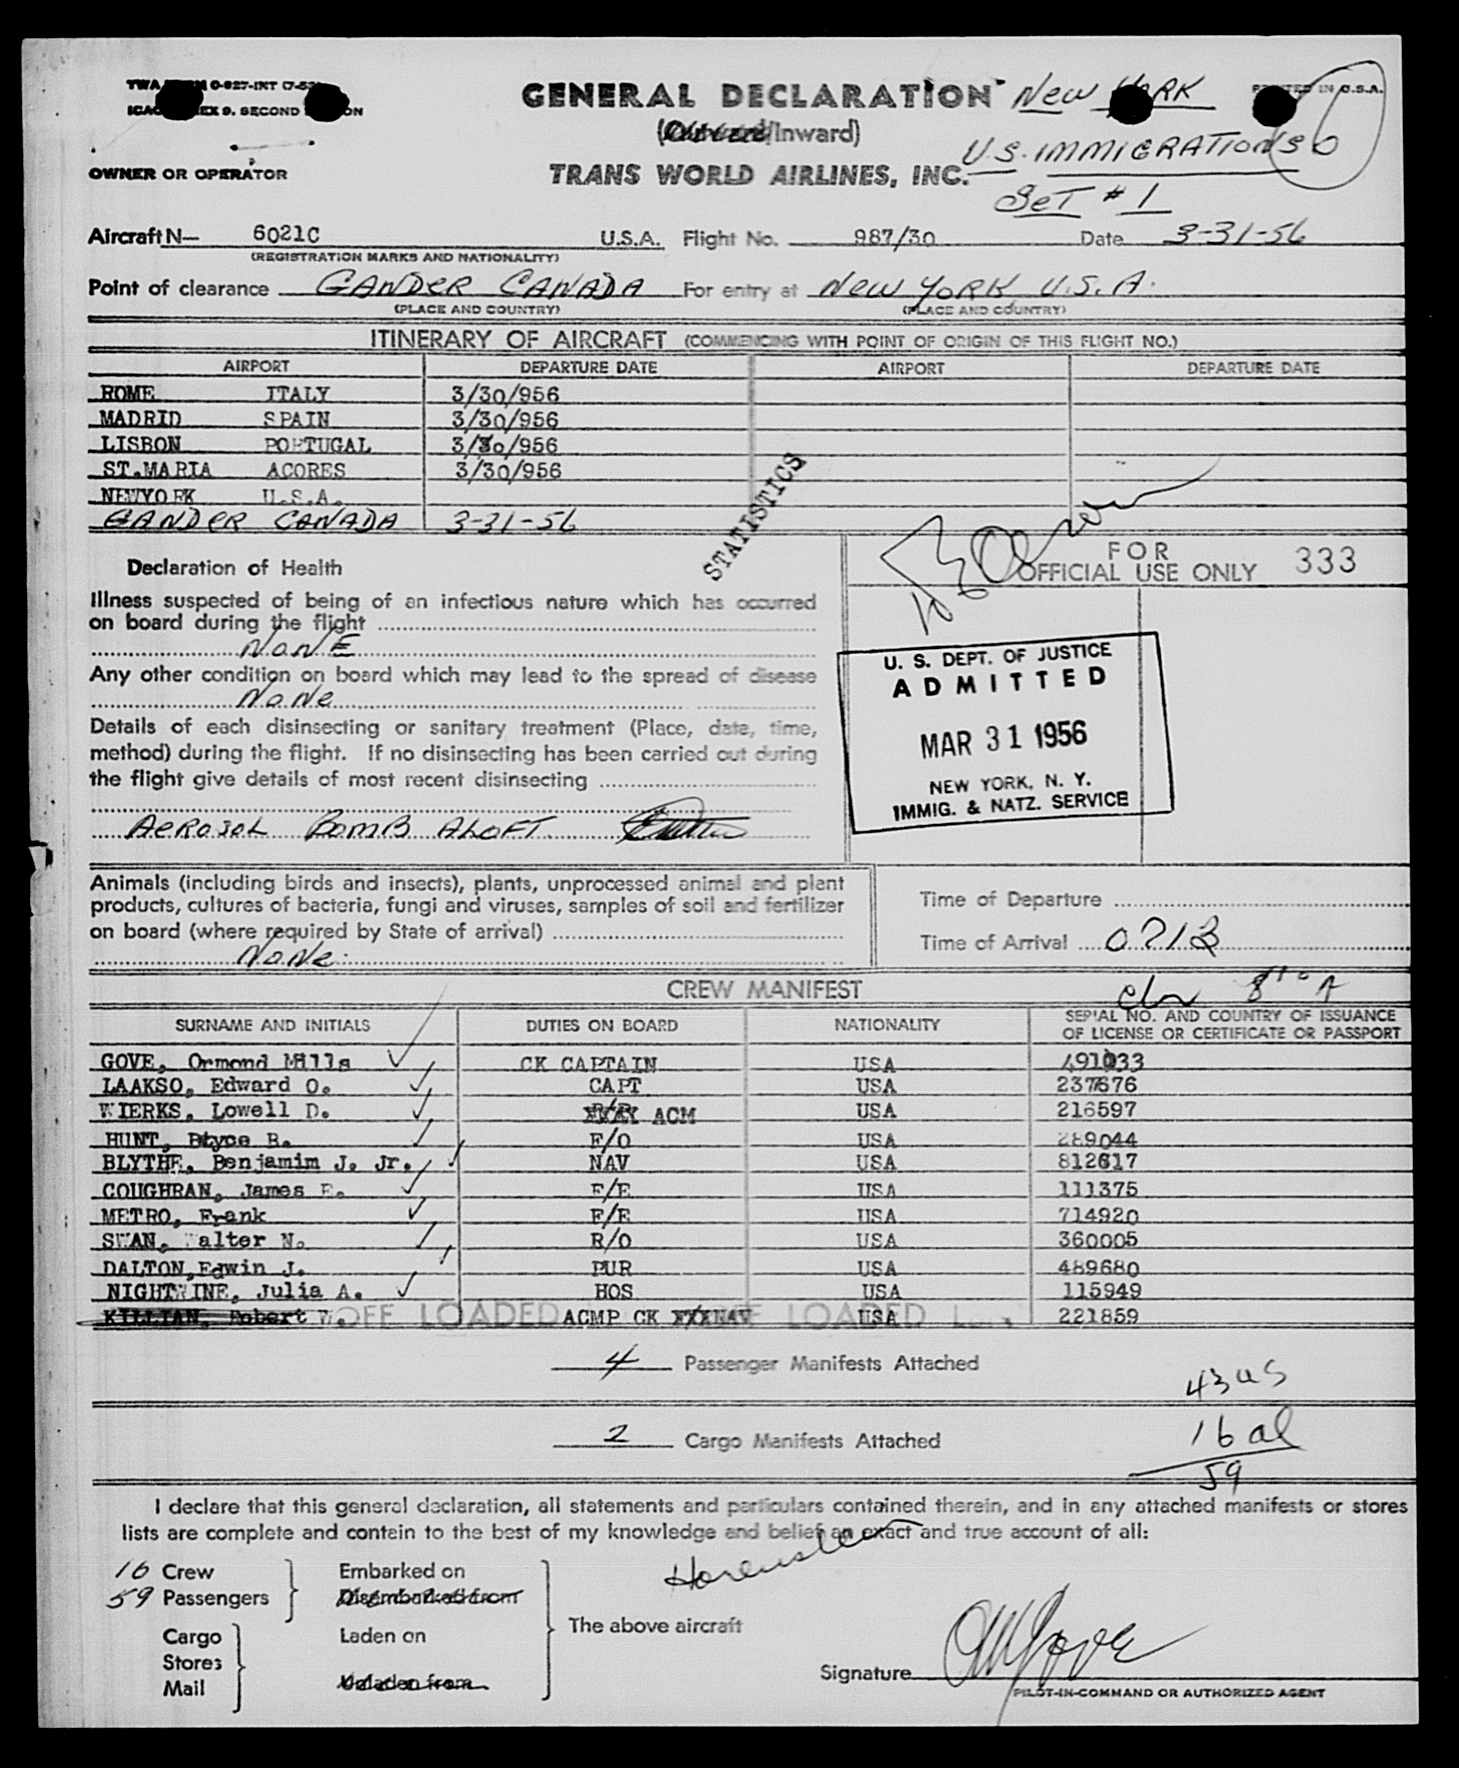 GENERAL DECLARATION New YORK
(Outward/Inward)
U.S. IMMIGRATIONS
OWNER OR OPERATOR TRANS WORLD AIRLINES, INC.
SET # 1
Aircraft N— 6021C U.S.A. Flight No. 987/30 Date 3-31-56
(REGISTRATION MARKS AND NATIONALITY)
Point of clearance GANDER CANADA For entry at New YORK U.S.A.
(PLACE AND COUNTRY) (PLACE AND COUNTRY)
ITINERARY OF AIRCRAFT (COMMENCING WITH POINT OF ORIGIN OF THIS FLIGHT NO.)
AIRPORT DEPARTURE DATE AIRPORT DEPARTURE DATE
ROME ITALY 3/30/956
MADRID SPAIN 3/30/956
LISBON PORTUGAL 3/30/956
ST.MARIA ACORES 3/30/956
NEWYORK U.S.A.
GANDER CANADA 3-31-56
STATISTICS
FOR
OFFICIAL USE ONLY 333
Declaration of Health
Illness suspected of being of an infectious nature which has occurred
on board during the flight
NONE
Any other condition on board which may lead to the spread of disease
NONe
Details of each disinsecting or sanitary treatment (Place, date, time,
method) during the flight. If no disinsecting has been carried out during
the flight give details of most recent disinsecting
AEROSOL BOMB ALOFT
U. S. DEPT. OF JUSTICE
ADMITTED
MAR 31 1956
NEW YORK, N. Y.
IMMIG. & NATZ. SERVICE
Animals (including birds and insects), plants, unprocessed animal and plant
products, cultures of bacteria, fungi and viruses, samples of soil and fertilizer
on board (where required by State of arrival)
NONe.
Time of Departure
Time of Arrival
CREW MANIFEST
SURNAME AND INITIALS DUTIES ON BOARD NATIONALITY SERIAL NO. AND COUNTRY OF ISSUANCE
OF LICENSE OR CERTIFICATE OR PASSPORT
GOVE, Ormond Mills CK CAPTAIN USA 491033
LAAKSO, Edward O. CAPT USA 237676
WIERKS, Lowell D. ACM USA 216597
HUNT, Bryce B. F/O USA 289044
BLYTHE, Benjamim J. Jr. NAV USA 812617
COUGHRAN, James E. F/E USA 111375
METRO, Frank F/E USA 714920
SWAN, Walter N. R/O USA 360005
DALTON, Edwin J. PUR USA 489680
NIGHTWINE, Julia A. HOS USA 115949
KILLIAN, Robert W. OFF LOADED ACMP CK OFF LOADED USA 221859
4 Passenger Manifests Attached
43 us
2 Cargo Manifests Attached
16 al
59
I declare that this general declaration, all statements and particulars contained therein, and in any attached manifests or stores
lists are complete and contain to the best of my knowledge and belief an exact and true account of all:
16 Crew Embarked on
59 Passengers Disembarked from
The above aircraft
Cargo Laden on
Stores
Mail Unladen from
Signature
PILOT-IN-COMMAND OR AUTHORIZED AGENT